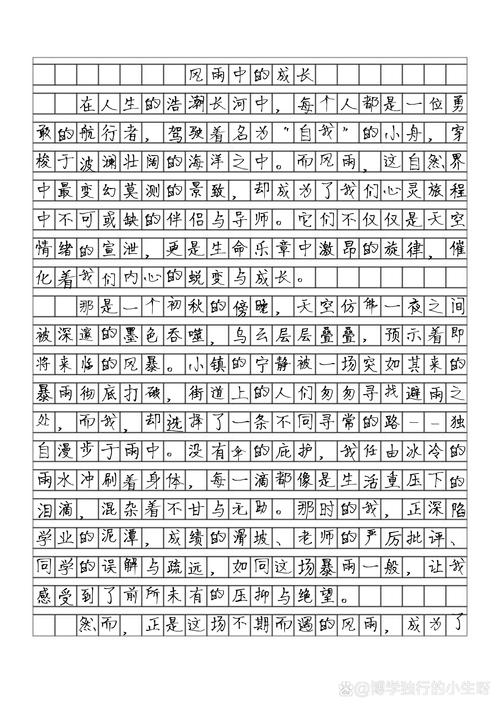 风雨中的成长
在人生的浩瀚长河中，每个人都是一位勇
敢的航行者，驾驶着名为“自我”的小舟，穿
梭于波澜壮阔的海洋之中。而风雨，这自然界
中最变幻莫测的景致，却成为了我们心灵旅程
中不可或缺的伴侣与导师。它们不仅仅是天空
情绪的宣泄，更是生命乐章中激昂的旋律，催
化着我们内心的蜕变与成长。
那是一个初秋的傍晚，天空仿佛一夜之间
被深邃的墨色吞噬，乌云层层叠叠，预示着即
将来临的风暴。小镇的宁静被一场突如其来的
暴雨彻底打破，街道上的人们匆匆寻找避雨之
处，而我，却选择了一条不同寻常的路--独
自漫步于雨中。没有伞的庇护，我任由冰冷的
雨水冲刷着身体，每一滴都像是生活重压下的
泪滴，混杂着不甘与无助。那时的我，正深陷
学业的泥潭，成绩的滑坡、老师的严厉批评、
同学的误解与疏远，如同这场暴雨一般，让我
感受到了前所未有的压抑与绝望。
然而，正是这场不期而遇的风雨，成为了
博学独行的小生呀